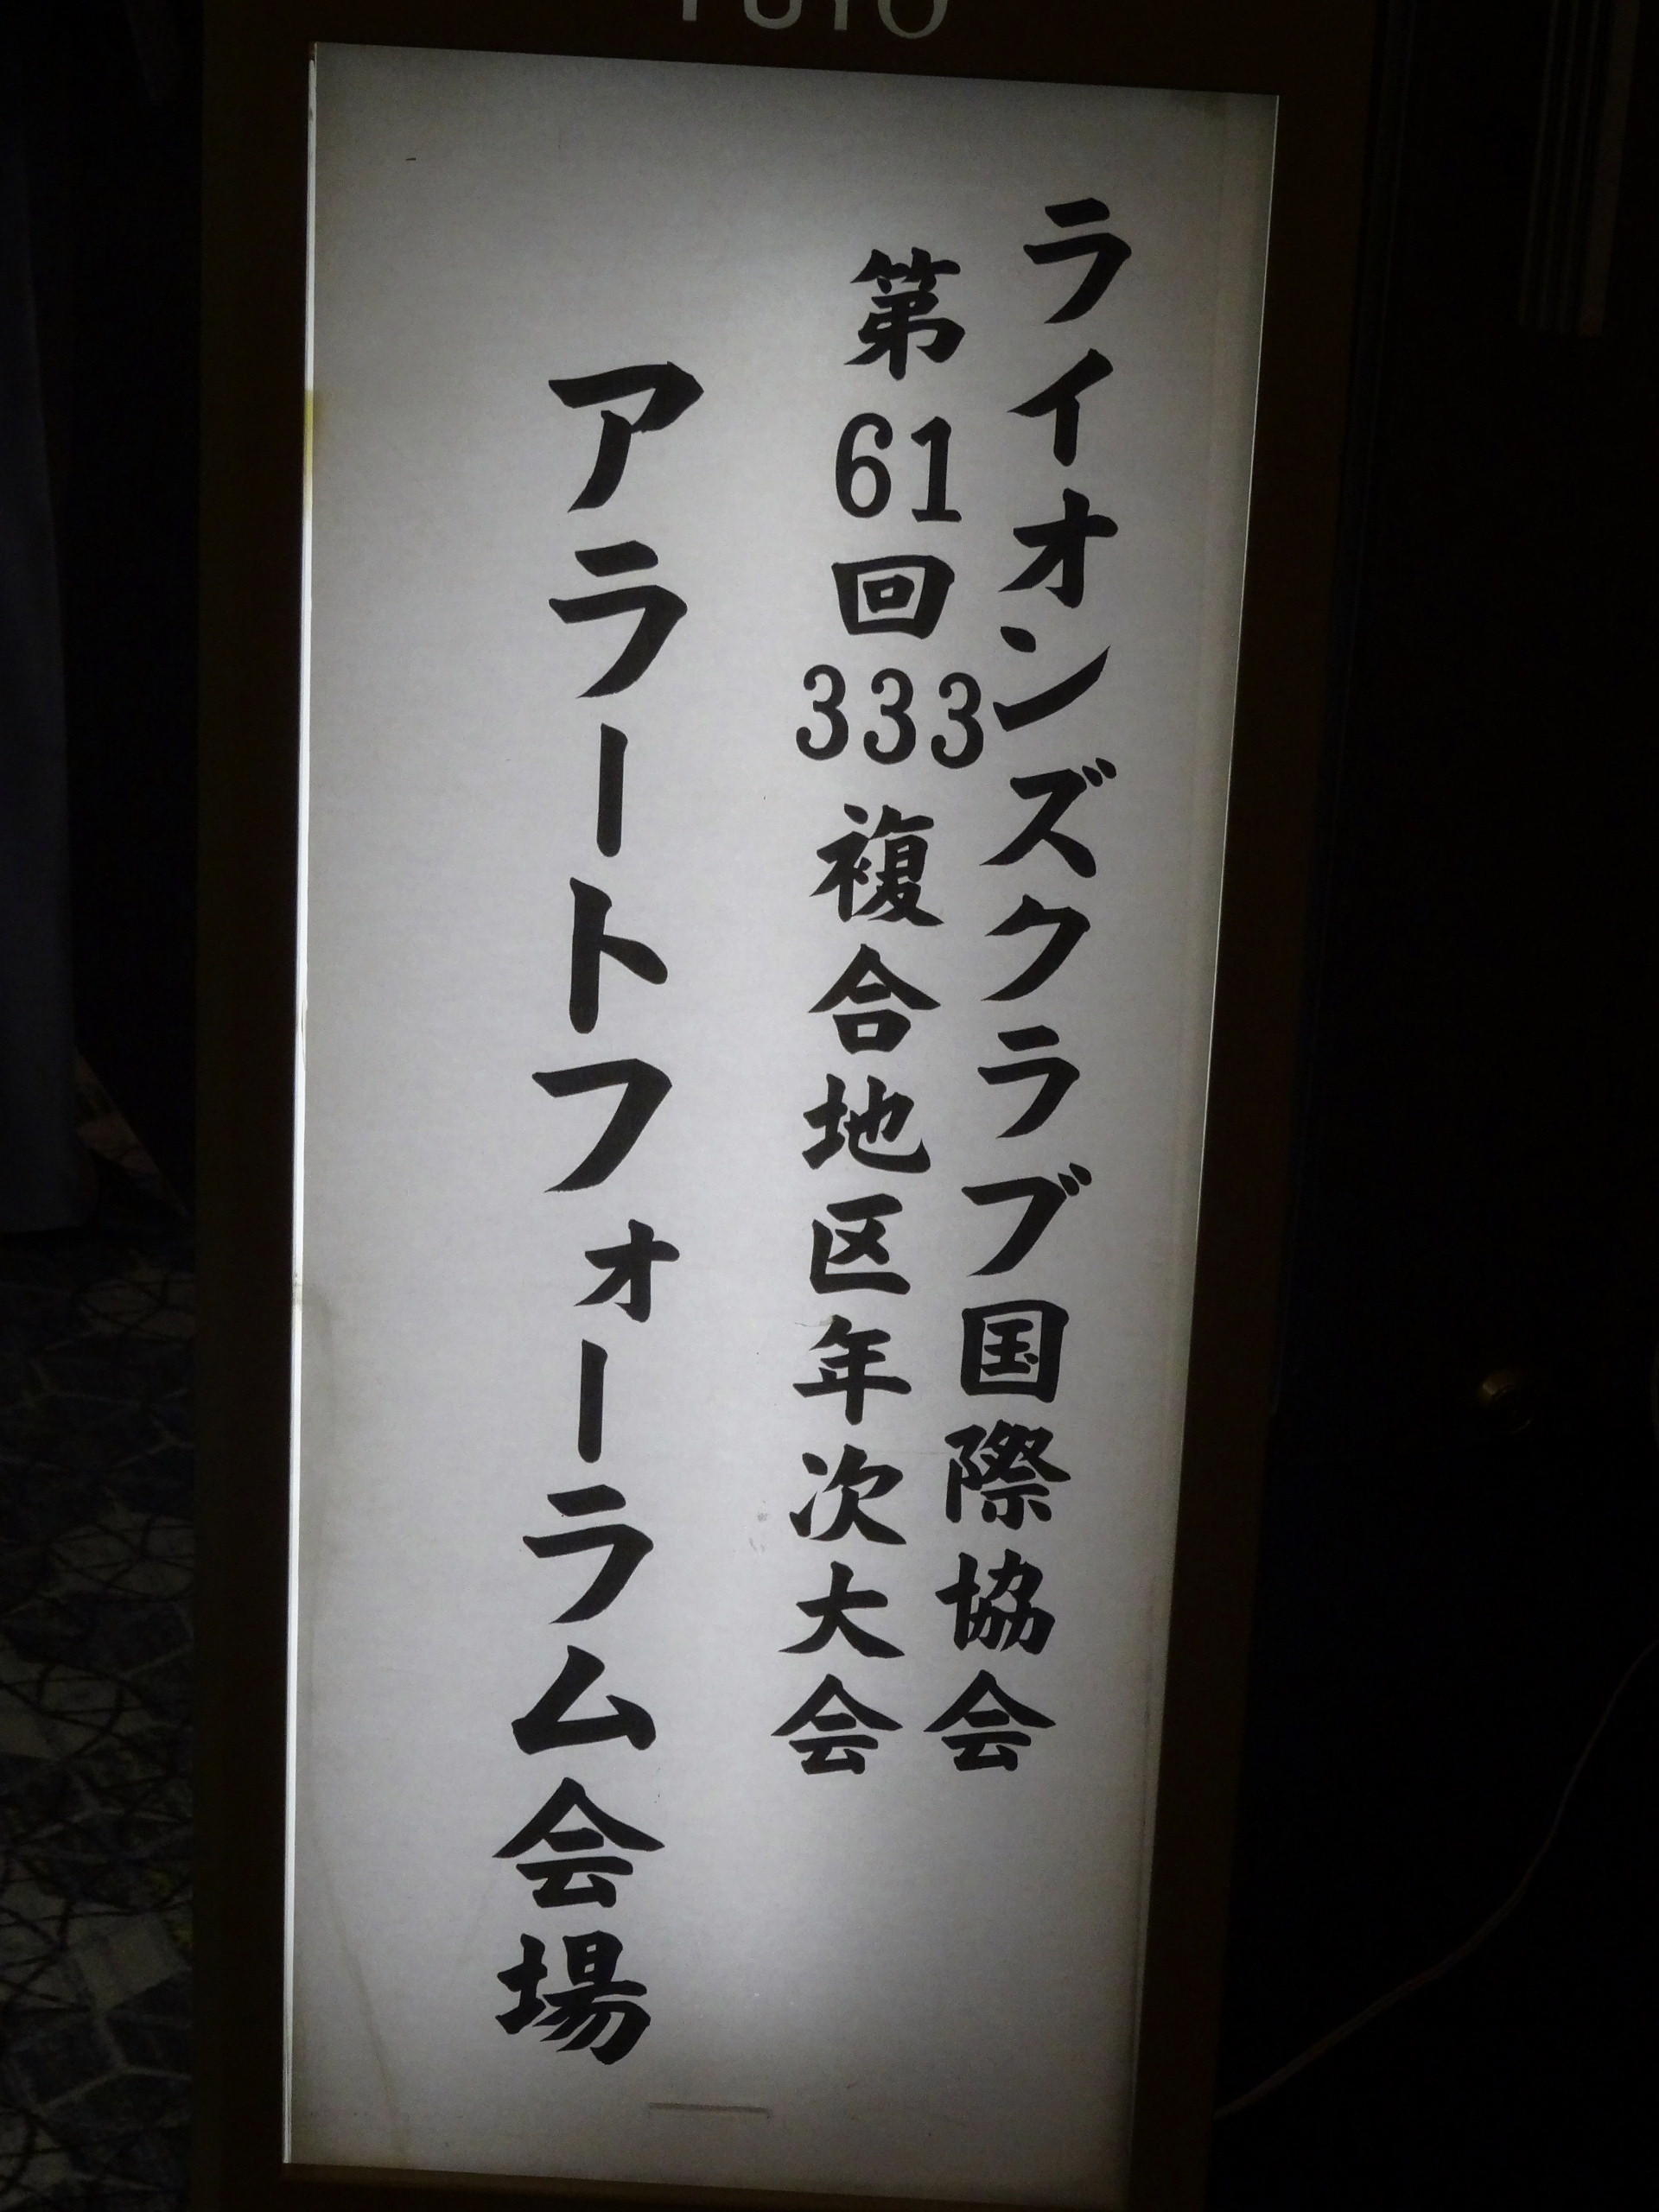 ライオンズクラブ国際協会
第61回333複合地区年次大会
アラートフォーラム会場